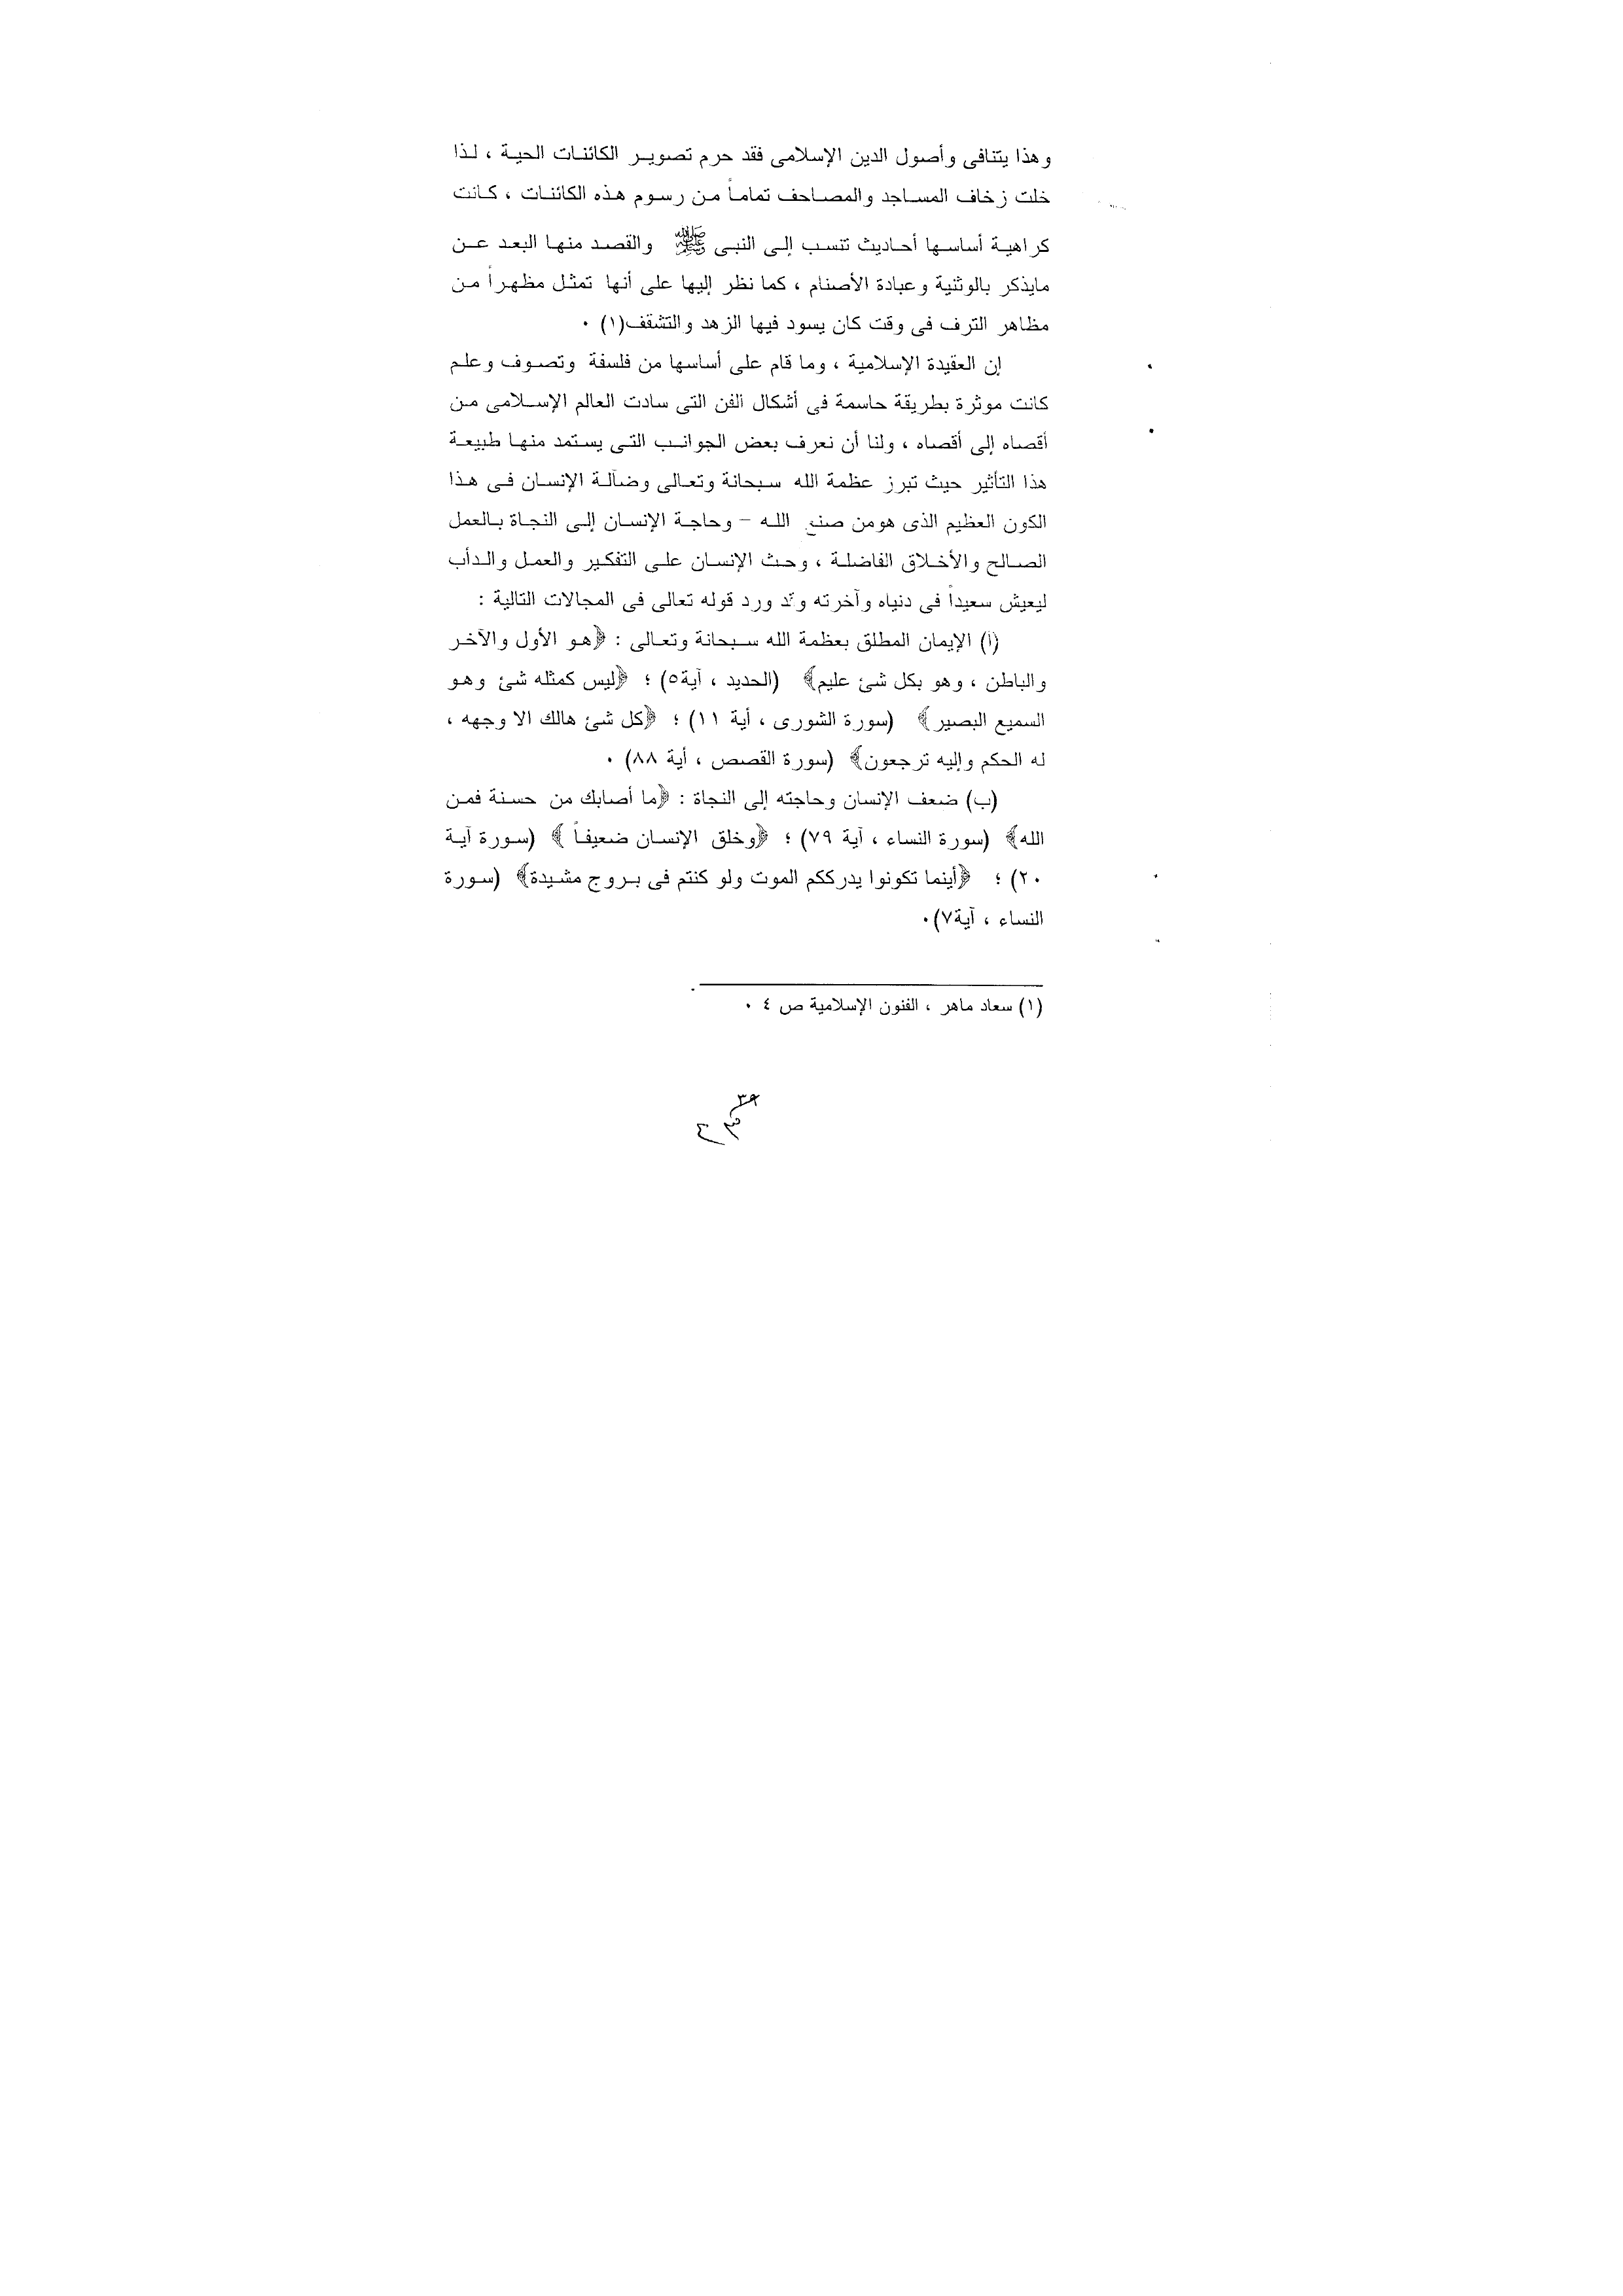 وهذا يتنافى وأصول الدين الإسلامى فقد حرم تصوير الكائنات الحية ، لذا
خلت زخاف المساجد والمصاحف تماماً من رسوم هذه الكائنات ، كانت
كراهية أساسها أحاديث تنسب إلى النبى ﷺ والقصد منها البعد عن
مايذكر بالوثنية وعبادة الأصنام ، كما نظر إليها على أنها تمثل مظهراً من
مظاهر الترف فى وقت كان يسود فيها الزهد والتشقف(١) ٠
إن العقيدة الإسلامية ، وما قام على أساسها من فلسفة وتصوف وعلم
كانت موثرة بطريقة حاسمة فى أشكال الفن التى سادت العالم الإسلامى من
أقصاه إلى أقصاه ، ولنا أن نعرف بعض الجوانب التى يستمد منها طبيعة
هذا التأثير حيث تبرز عظمة الله سبحانة وتعالى وضآلة الإنسان فى هذا
الكون العظيم الذى هومن صنع الله – وحاجة الإنسان إلى النجاة بالعمل
الصالح والأخلاق الفاضلة ، وحث الإنسان على التفكير والعمل والدأب
ليعيش سعيداً فى دنياه وآخرته وقد ورد قوله تعالى فى المجالات التالية :
(أ) الإيمان المطلق بعظمة الله سبحانة وتعالى : ﴿هو الأول والآخر
والباطن ، وهو بكل شئ عليم﴾ (الحديد ، آية٥) ؛ ﴿ليس كمثله شئ وهو
السميع البصير﴾ (سورة الشورى ، أية ١١) ؛ ﴿كل شئ هالك الا وجهه ،
له الحكم وإليه ترجعون﴾ (سورة القصص ، أية ٨٨) ٠
(ب) ضعف الإنسان وحاجته إلى النجاة : ﴿ما أصابك من حسنة فمن
الله﴾ (سورة النساء ، آية ٧٩) ؛ ﴿وخلق الإنسان ضعيفاً ﴾ (سورة آية
٢٠) ؛ ﴿أينما تكونوا يدرككم الموت ولو كنتم فى بروج مشيدة﴾ (سورة
النساء ، آية٧)٠
(١) سعاد ماهر ، الفنون الإسلامية ص ٤ ٠
٣٩